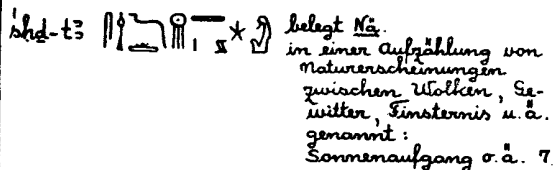 śḥḏ-tꜣ belegt Nä.
in einer Aufzählung von
Naturerscheinungen
zwischen Wolken, Ge-
witter, Finsternis u. ä.
genannt:
Sonnenaufgang o. ä. 7